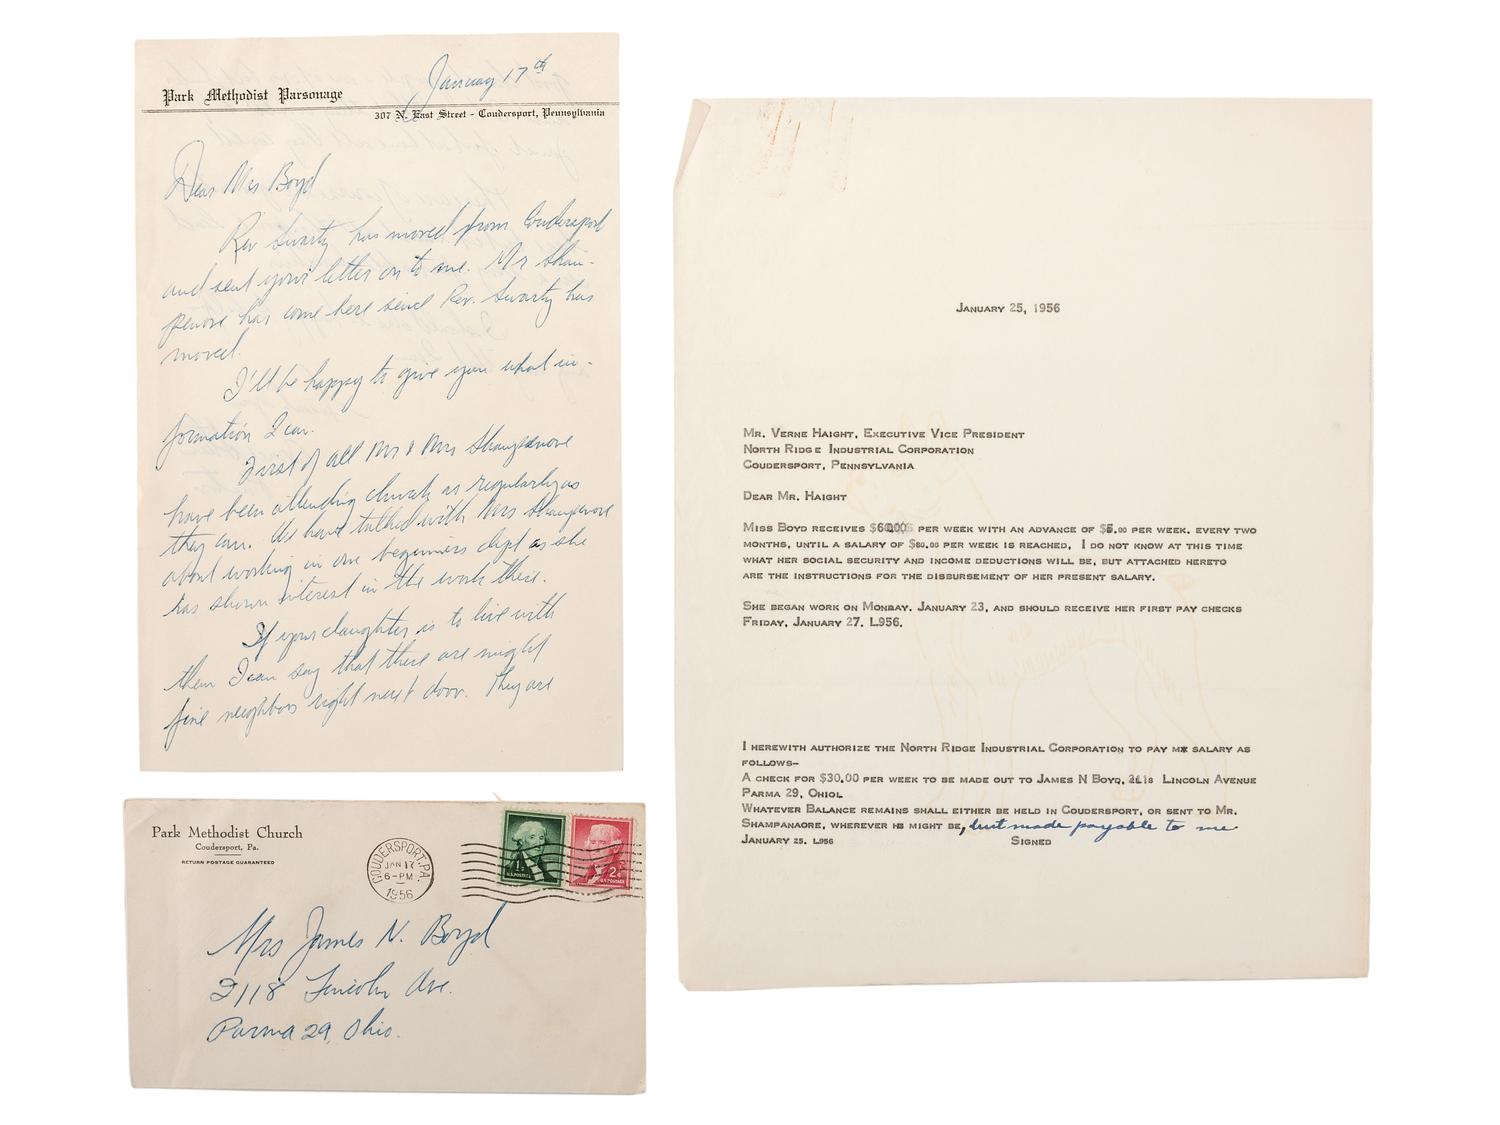 January 17th
Park Methodist Parsonage
307 N. East Street - Coudersport, Pennsylvania
Dear Mrs Boyd
Rev Swartz has moved from Coudersport
and sent your letter on to me. Mr Sham-
penore has come here since Rev. Swartz has
moved.
I'll be happy to give you what in-
formation I can.
First of all Mr & Mrs Shampenore
have been attending church as regularly as
they can. We have talked with Mrs Shampenore
about working in our beginners dept as she
has shown interest in the work there.
If your daughter is to live with
them I can say that there are might
fine neighbors right next door. They are
Park Methodist Church
Coudersport, Pa.
RETURN POSTAGE GUARANTEED
COUDERSPORT, PA.
JAN 17
6-PM
1956
1¢
U.S. POSTAGE
2¢
U.S. POSTAGE
Mrs James N. Boyd
2118 Lincoln Ave.
Parma 29, Ohio.
January 25, 1956
Mr. Verne Haight, Executive Vice President
North Ridge Industrial Corporation
Coudersport, Pennsylvania
Dear Mr. Haight
Miss Boyd receives per week with an advance of $5.00 per week, every two
months, until a salary of $80.00 per week is reached. I do not know at this time
what her social security and income deductions will be, but attached hereto
are the instructions for the disbursement of her present salary.
She began work on Monday, January 23, and should receive her first pay checks
Friday, January 27. L956.
I herewith authorize the North Ridge Industrial Corporation to pay salary as
follows-
A check for $30.00 per week to be made out to James N Boyd, Lincoln Avenue
Parma 29, OhioL
Whatever Balance remains shall either be held in Coudersport, or sent to Mr.
Shampanaore, wherever he might be, but made payable to me
January 25. L956 Signed